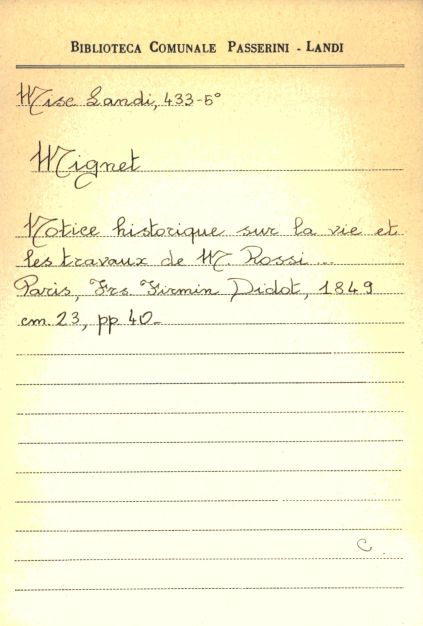 BIBLIOTECA COMUNALE PASSERINI - LANDI
Misc Landi, 433-5°
Mignet
Notice historique sur la vie et
les travaux de M. Rossi ...
Paris, Frs Firmin Didot, 1849
cm 23, pp 40-
C